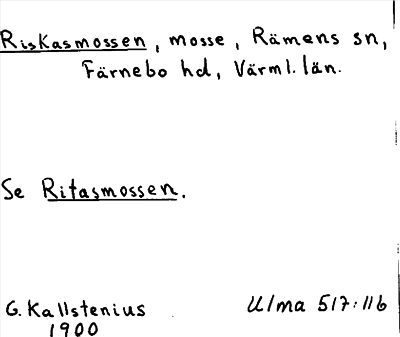 Riskasmossen, mosse, Rämens sn,
Färnebo hd, Värml. län.
Se Ritasmossen.
G. Kallstenius
1900
Ulma 517:116